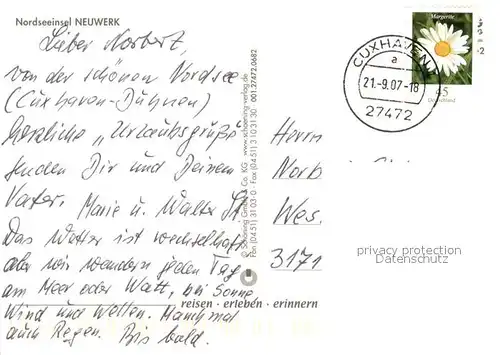 Nordseeinsel NEUWERK
Lieber Norbert,
von der schönen Nordsee
(Cuxhaven-Duhnen)
herzliche "Urlaubsgrüße"
senden Dir und Deinem
Vater. Marie u. Walter St.
Das Wetter ist wechselhaft
aber wir wandern jeden Tag
am Meer oder Watt, bei Sonne
Wind und Wolken. Manchmal
auch Regen. Bis bald.
reisen · erleben · erinnern
© Schöning GmbH & Co. KG · www.schoening-verlag.de
Fon (04 51) 31 03-0 · Fax (04 51) 3 10 31 30 001.2/7472.0682
Margerite
45
Deutschland
CUXHAVEN 1
a
21.-9.07-18
27472
Herrn
Norb
Wes.
3171
privacy protection
Datenschutz